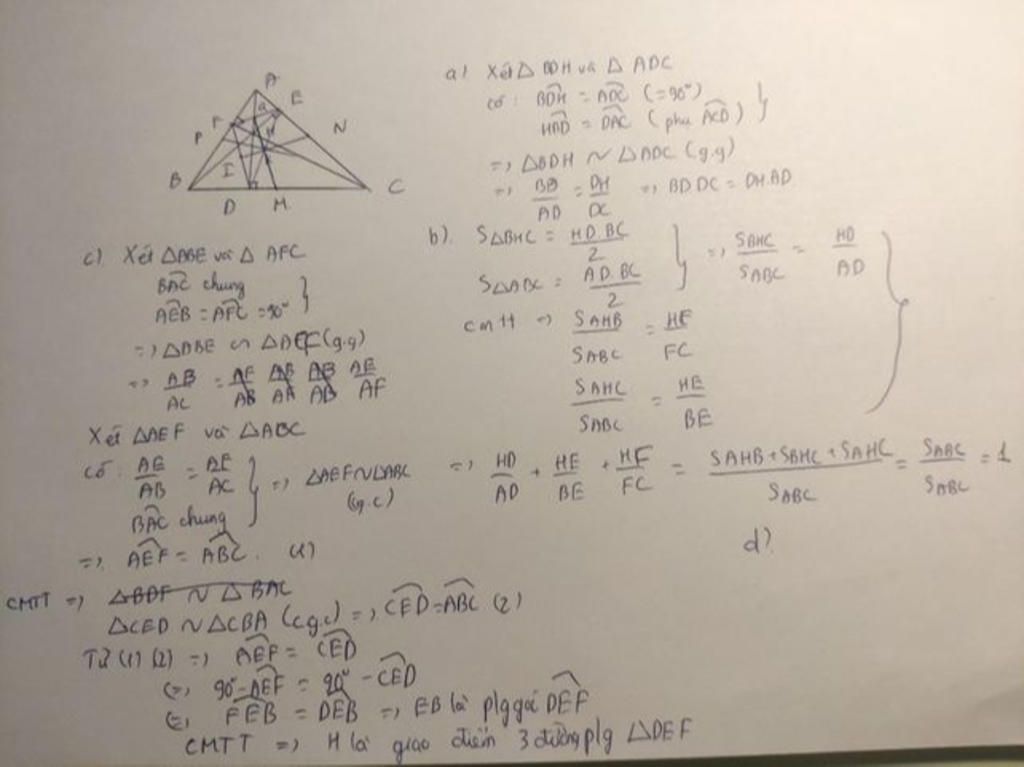 A
E
F
Q
P
N
H
I
B
C
D
M
a) Xét △ BDH và △ ADC
có: BDH = ADC (= 90°)
HBD = DAC (phụ ACD)
=> △BDH ~ △ADC (g.g)
=> BD/AD = DH/DC => BD.DC = DH.AD
b). S△BHC = HD.BC/2
S△ABC = AD.BC/2
=> SBHC/SABC = HD/AD
CMTT => SAHB/SABC = HF/FC
SAHC/SABC = HE/BE
=> HD/AD + HE/BE + HF/FC = SAHB+SBHC+SAHC/SABC = SABC/SABC = 1
c) Xét △ABE và △ AFC
BAC chung
AEB = AFC = 90°
=> △ABE ∽ △AEF (g.g)
=> AB/AC = AE/AF
Xét △AEF và △ABC
có: AE/AB = AF/AC
BAC chung
=> △AEF ~ △ABC (g.c)
=> AEF = ABC. (1)
CMTT => △BDF ~ △BAC
△CED ~ △CBA (c.g.c) => CED = ABC (2)
Từ (1) (2) => AEF = CED
(=) 90° - AEF = 90° - CED
(=) FEB = DEB => EB là plg góc DEF
CMTT => H là giao điểm 3 đường plg △DEF
d)